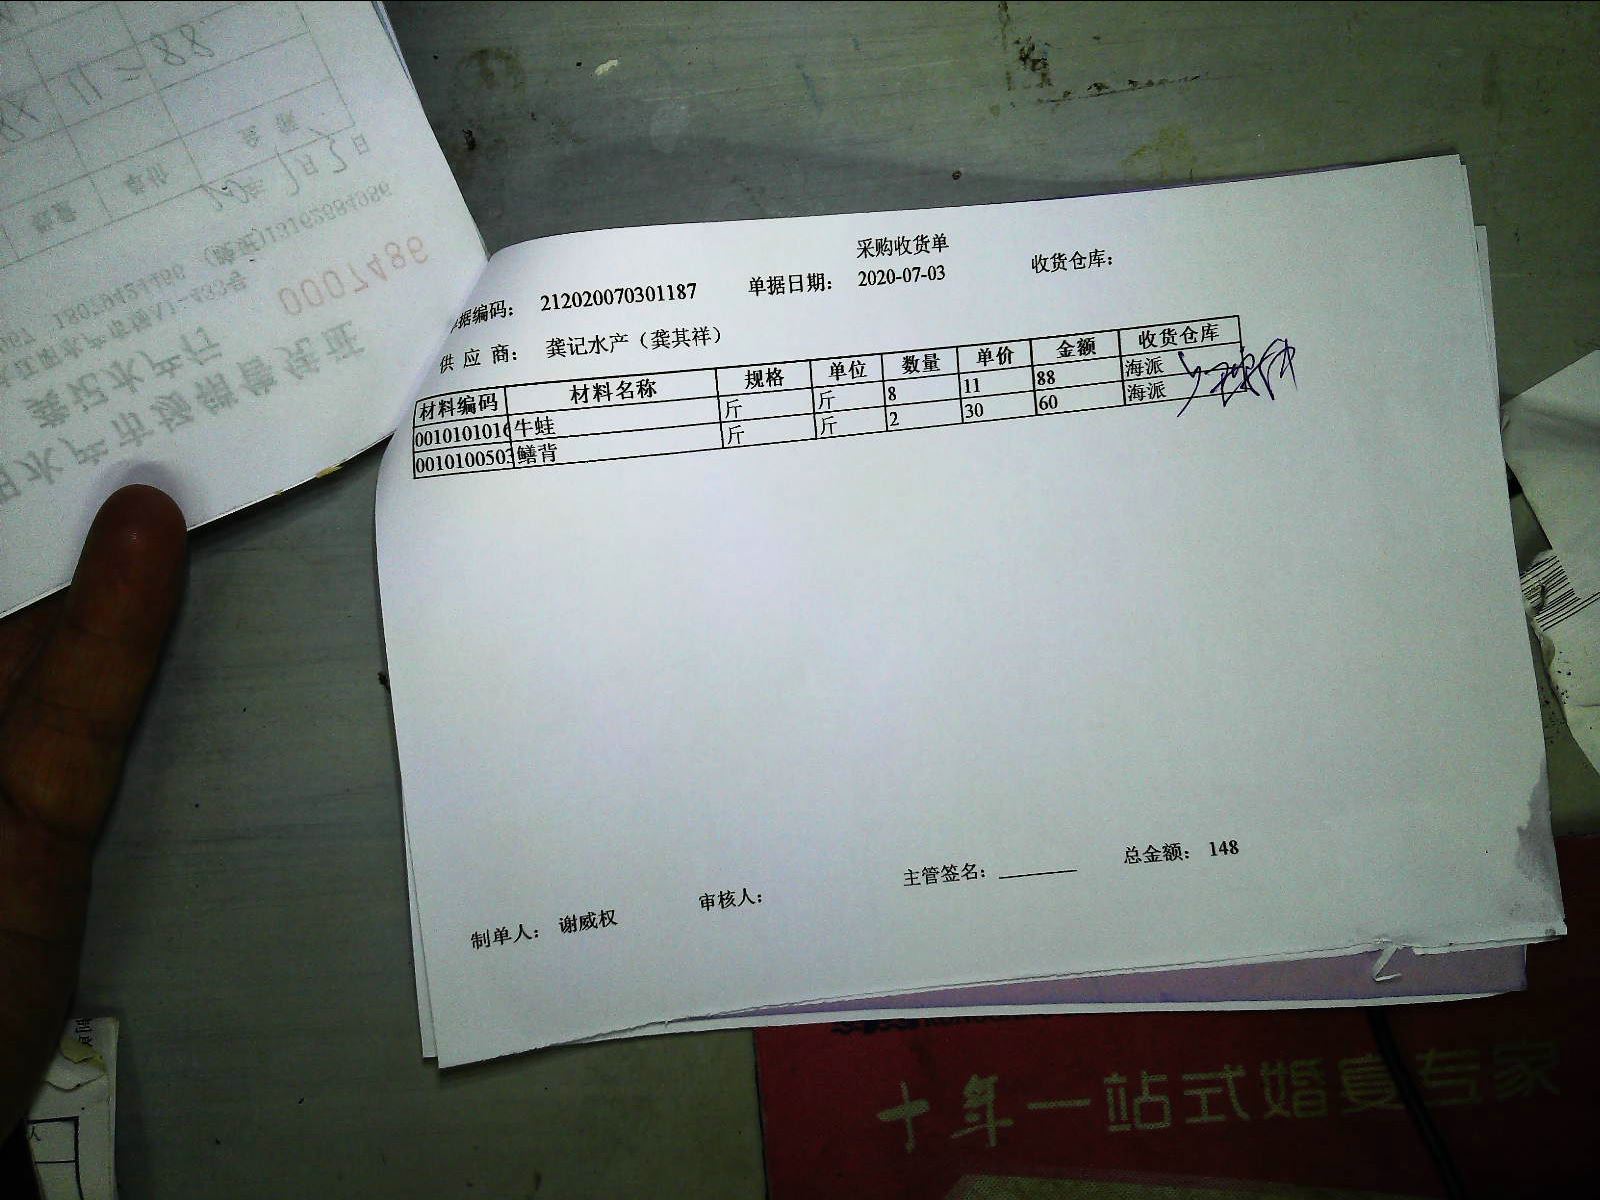 采购收货单
单据编码： 212020070301187 单据日期： 2020-07-03 收货仓库：
供 应 商： 龚记水产（龚其祥）
材料编码 材料名称 规格 单位 数量 单价 金额 收货仓库
0010101016 牛蛙 斤 斤 8 11 88 海派
0010100503 鳝背 斤 斤 2 30 60 海派
制单人： 谢威权 审核人： 主管签名： 总金额： 148
0007486
龚记水产行
水产市场销售凭证
数量 单价 金额
十年一站式婚宴专家